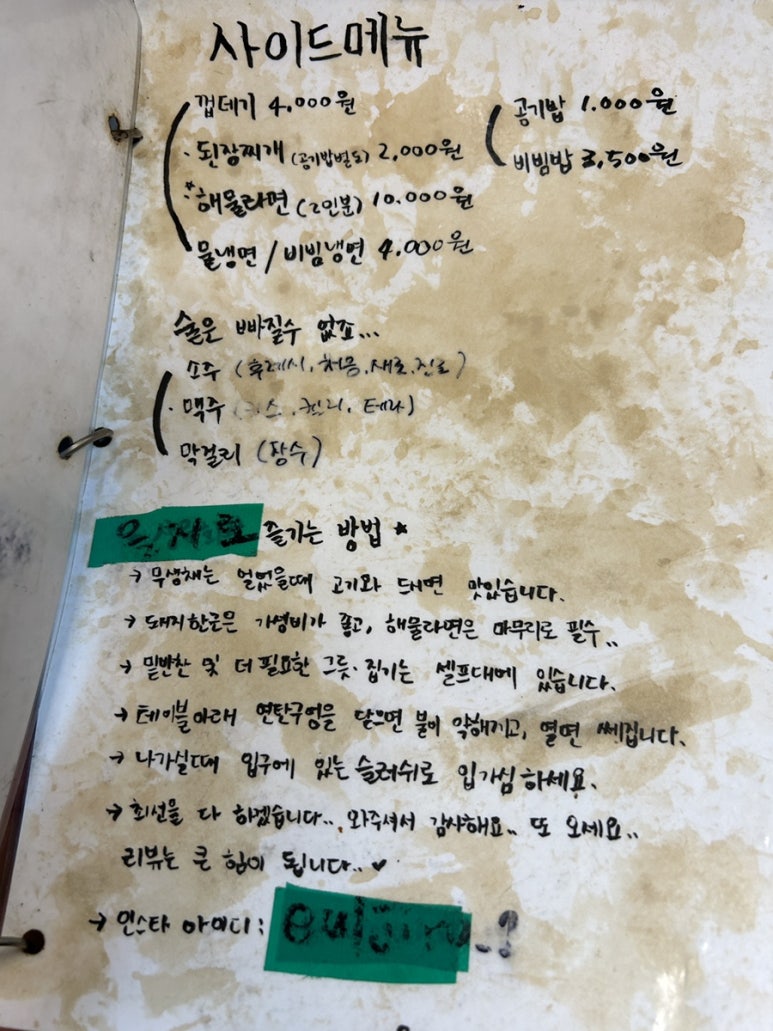 사이드메뉴
껍데기 4,000원
· 된장찌개 (공기밥별도) 2,000원
해물라면 (2인분) 10,000원
물냉면 / 비빔냉면 4,000원
공기밥 1,000원
비빔밥 3,500원
술은 빠질수 없죠...
소주 (후레시, 처음, 새로, 진로)
· 맥주 (카스, 켈리, 테라)
막걸리 (장수)
즐기는 방법 ★
→ 무생채는 얼었을때 고기와 드시면 맛있습니다.
→ 돼지한근은 가성비가 좋고, 해물라면은 마무리로 필수..
→ 밑반찬 및 더 필요한 그릇·집기는 셀프대에 있습니다.
→ 테이블아래 연탄구멍을 닫으면 불이 약해지고, 열면 쎄집니다.
→ 나가실때 입구에 있는 슬러쉬로 입가심 하세요.
→ 최선을 다 하겠습니다.. 와주셔서 감사해요.. 또 오세요..
리뷰는 큰 힘이 됩니다.. ♥
→ 인스타 아이디: